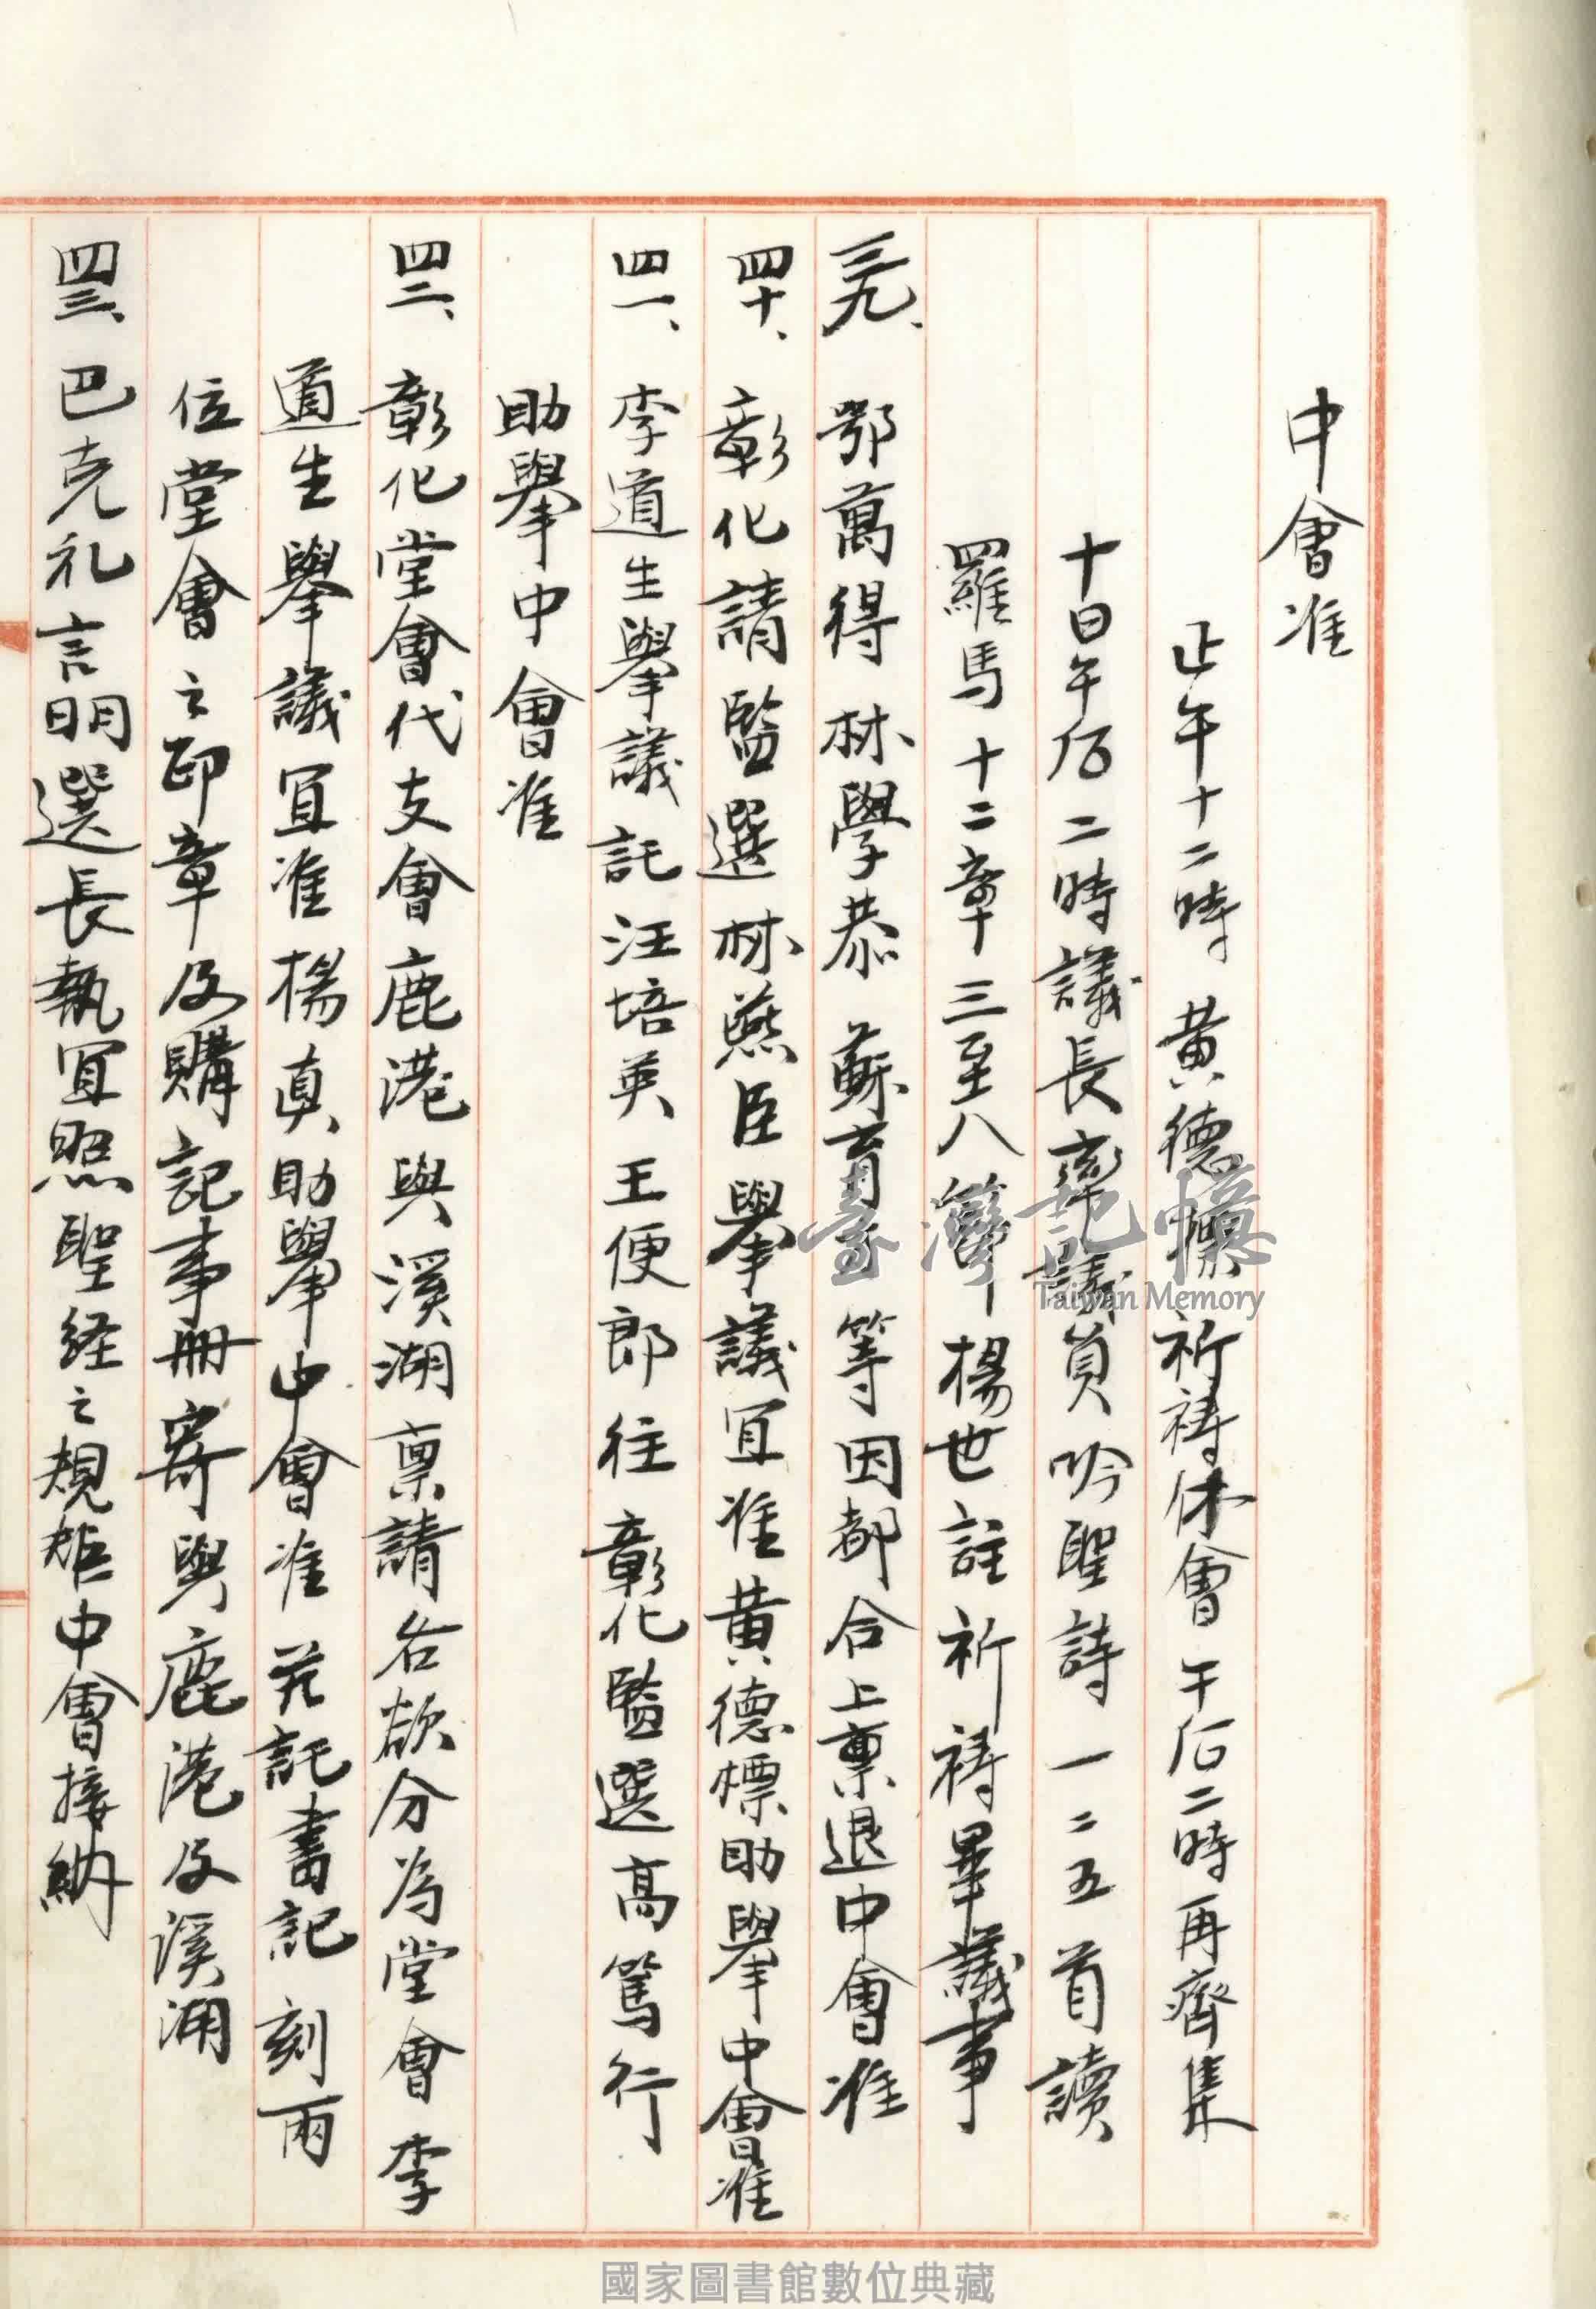 中會准
正午十二時 黃德標祈禱休會 下后二時再齊集
十日午后二時議長率議員吟聖詩一二五首讀
羅馬十二章三至八節楊世註祈禱畢議事
三九、鄂萬得 林學恭 蘇育才等因都合上稟退中會准
四十、彰化請監選林燕臣舉議宜准黃德標助舉中會准
四一、李道生舉議託汪培英 王便郎往彰化監選高篤行
助舉中會准
四二、彰化堂會代支會鹿港與溪湖稟請各欲分為堂會李
道生舉議宜准楊真助舉中會准並託書記刻兩
位堂會之印章及購記事冊寄與鹿港及溪湖
四三、巴克礼言明選長執宜照聖経之規矩中會接納
臺灣記憶
Taiwan Memory
國家圖書館數位典藏